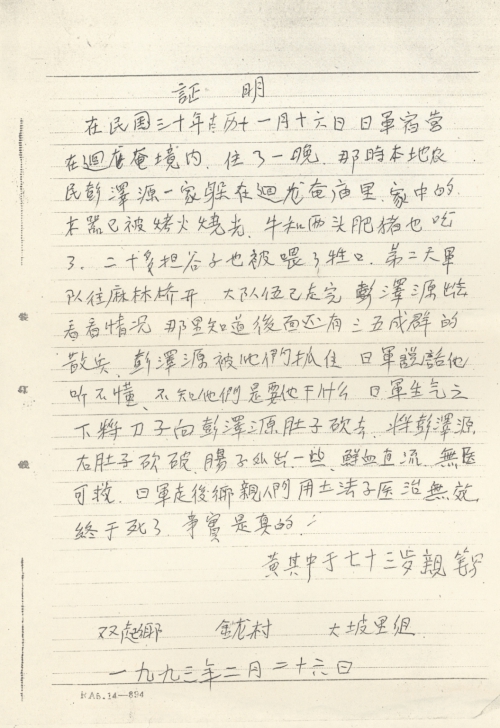 証 明
在民国三十年古历十一月十六日日軍宿营
在迴龙奄境内.住了一晚.那時本地农
民彭澤源一家躲在迴龙奄庙里.家中的
木器已被烤火燒光.牛和两头肥猪也吃
了.二十多担谷子也被喂了牲口.第二天軍
队往麻林桥开.大队伍已走完 彭澤源出去
看看情况 那里知道後面还有三五成群的
散兵.彭澤源被他們抓住 日軍説話他
听不懂、不知他們是要他干什么 日軍生气之
下将刀子向彭澤源肚子砍去.将彭澤源
右肚子砍破.腸子外出一些.鮮血直流.無医
可救.日軍走後鄉親人們用土法子医治無效
終于死了.事實是真的.
黄其中于七十三岁親筆
双起鄉 龙村 大坡里组
一九九三年二月二十六日
装
訂
線
KA6.14—894